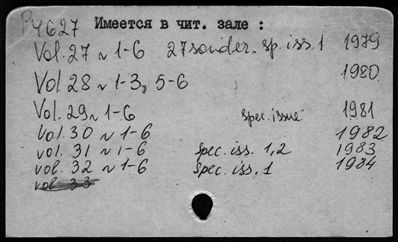 РЧ627 Имеется в чит. зале :
Vol. 27 N 1-6 27 sonder. sp. iss. 1 1979
Vol 28 N 1-3, 5-6 1980
Vol. 29 N 1-6 spec. issue 1981
vol. 30 N 1-6 1982
vol. 31 N 1-6 spec. iss. 1,2 1983
vol. 32 N 1-6 spec. iss. 1 1984
vol 33